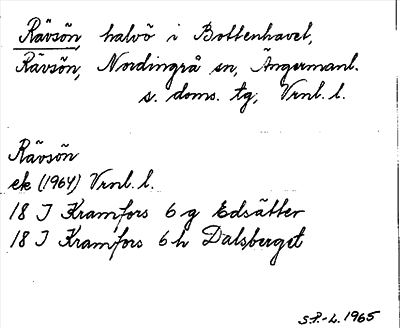 Rävsön, halvö i Bottenhavet,
Rävsön, Nordingrå sn, Ångermanl.
s. doms. tg, Vrnl. l.
Rävsön
ek (1964) Vrnl. l.
18 I Kramfors 6 g Edsätter
18 I Kramfors 6 h Dalsberget
S.P.-L. 1965